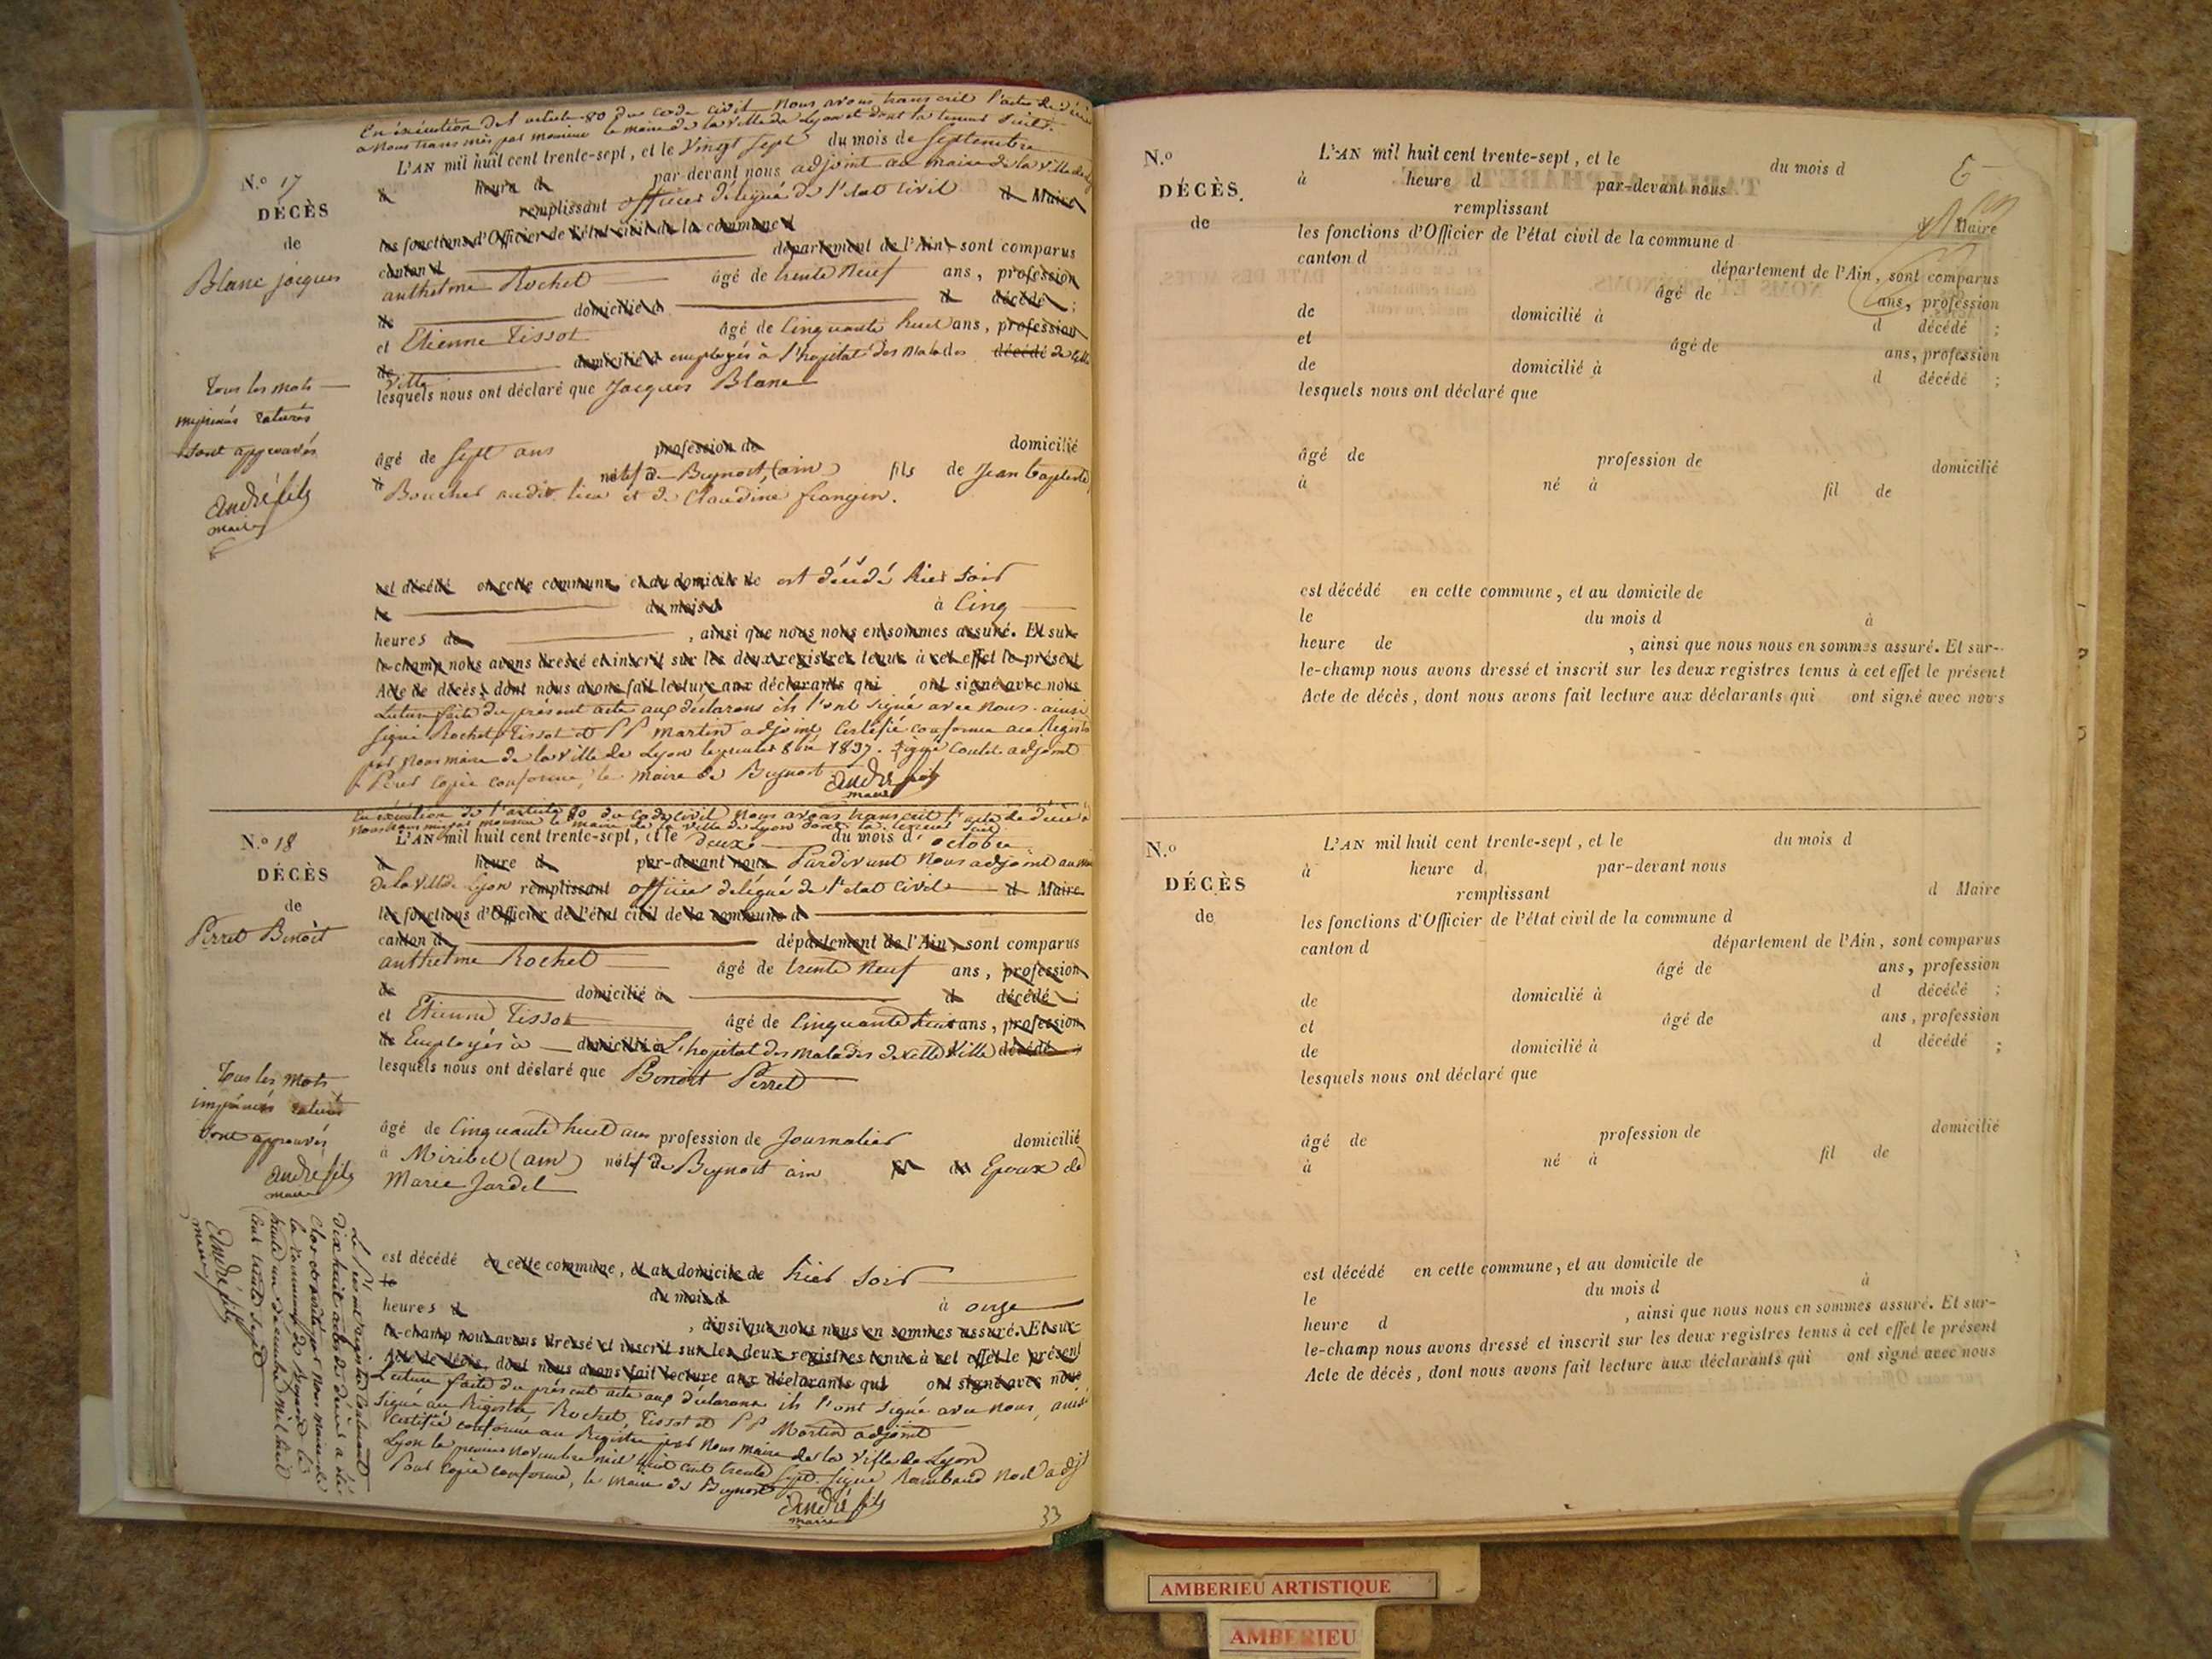 En exécution de l'article 80 du code civil nous avons transcrit l'acte de décès
a nous transmis par monsieur le maire de la ville de Lyon et dont la teneur suit.
N.º 17
DÉCÈS
de
Blanc jacques
L'AN mil huit cent trente-sept, et le vingt sept du mois de septembre
à heure d par-devant nous adjoint au maire de la ville de
remplissant officier délégué de l'état civil d Maire
les fonctions d'Officier de l'état civil de la commune d
canton d département de l'Ain, sont comparus
anthelme Rochet âgé de trente neuf ans, profession
de domicilié à d décédé ;
et Etienne Tissot âgé de cinquante huit ans, profession
de domicilié à employés à l'hopital des malades décédé de cette
ville
lesquels nous ont déclaré que Jacques Blanc
tous les mots
imprimés raturés
sont approuvés
André fils
maire
âgé de sept ans profession de domicilié
à né natif de Beynost, (ain) fils de Jean baptiste
Boucher audit lieu et de Claudine frangin.
est décédé en cette commune, et au domicile de est décédé hier soir
le du mois d à cinq
heures de , ainsi que nous nous en sommes assuré. Et sur-
le-champ nous avons dressé et inscrit sur les deux registres tenus à cet effet le présent
Acte de décès, dont nous avons fait lecture aux déclarants qui ont signé avec nous
Lecture faite du présent acte aux déclarans ils l'ont signé avec nous. ainsi
signé Rochet, Tissot et PP martin adjoint Certifié conforme au Registre
par nous maire de la ville de Lyon le premier 8bre 1837. signé adjoint
Pour copie conforme, le maire de Beynost André fils
maire
En exécution de l'article 80 du code civil nous avons transcrit l'acte de décès a
nous transmis par monsieur le maire de la ville de Lyon dont la teneur suit.
N.º 18
DÉCÈS
de
Perret Benoit
L'AN mil huit cent trente-sept, et le deux du mois d'octobre
à heure d par-devant nous Pardevant nous adjoint au maire
de la ville de Lyon remplissant officier délégué de l'état civil d Maire
les fonctions d'Officier de l'état civil de la commune d
canton d département de l'Ain, sont comparus
anthelme Rochet âgé de trente neuf ans, profession
de domicilié à d décédé ;
et Etienne Tissot âgé de cinquante huit ans, profession
de Employés à domicilié à L'hopital des malades de cette ville décédé ;
lesquels nous ont déclaré que Benoit Perret
Tous les mots
imprimés raturés
sont approuvés
André fils
maire
âgé de cinquante huit ans profession de Journalier domicilié
à Miribel (ain) né natif de Beynost ain fil de Epoux de
Marie Jardel
est décédé en cette commune, et au domicile de hier soir
le du mois d à onze
heures d , ainsi que nous nous en sommes assuré. Et sur-
le-champ nous avons dressé et inscrit sur les deux registres tenus à cet effet le présent
Acte de décès, dont nous avons fait lecture aux déclarants qui ont signé avec nous
Lecture faite du présent acte aux déclarans ils l'ont signé avec nous, ainsi
signé au Registre Rochet, Tissot et PP Martin adjoint
Certifié conforme au Registre par nous maire de la ville de Lyon
Lyon le premier novembre mil huit cent trente sept. signé Rambaud adjt
Pour copie conforme, le maire de Beynost
André fils
maire
Le Présent registre contenant
dix huit actes de décès a été
clos et par nous maire de
la commune de Beynost le
trente un décembre mil huit
cent trente sept
André fils
maire
33
6
N.º
DÉCÈS.
de
L'AN mil huit cent trente-sept, et le du mois d
à heure d par-devant nous
remplissant d Maire
les fonctions d'Officier de l'état civil de la commune d
canton d département de l'Ain, sont comparus
âgé de ans, profession
de domicilié à d décédé ;
et âgé de ans, profession
de domicilié à d décédé ;
lesquels nous ont déclaré que
âgé de profession de domicilié
à né à fil de
est décédé en cette commune, et au domicile de
le du mois d à
heure de , ainsi que nous nous en sommes assuré. Et sur-
le-champ nous avons dressé et inscrit sur les deux registres tenus à cet effet le présent
Acte de décès, dont nous avons fait lecture aux déclarants qui ont signé avec nous
N.º
DÉCÈS
de
L'AN mil huit cent trente-sept, et le du mois d
à heure d par-devant nous
remplissant d Maire
les fonctions d'Officier de l'état civil de la commune d
canton d département de l'Ain, sont comparus
âgé de ans, profession
de domicilié à d décédé ;
et âgé de ans, profession
de domicilié à d décédé ;
lesquels nous ont déclaré que
âgé de profession de domicilié
à né à fil de
est décédé en cette commune, et au domicile de
le du mois d à
heure d , ainsi que nous nous en sommes assuré. Et sur-
le-champ nous avons dressé et inscrit sur les deux registres tenus à cet effet le présent
Acte de décès, dont nous avons fait lecture aux déclarants qui ont signé avec nous
AMBERIEU ARTISTIQUE
AMBERIEU